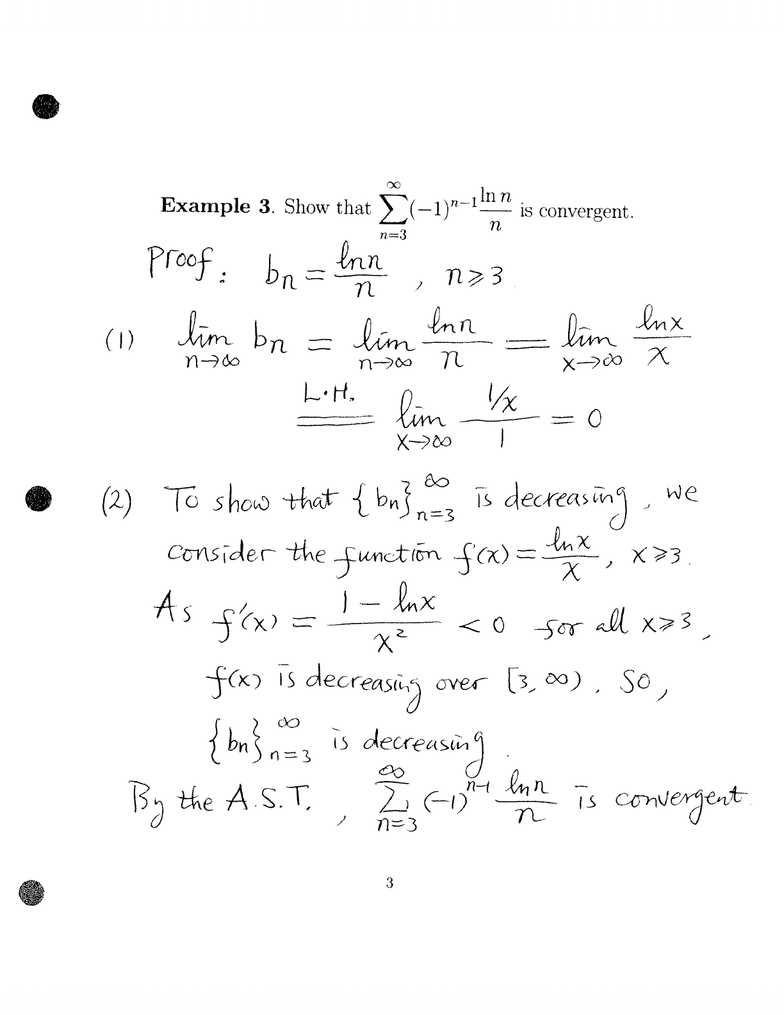 Example 3. Show that $\sum_{n=3}^{\infty}(-1)^{n-1}\frac{\ln n}{n}$ is convergent.
Proof: $b_n = \frac{\ln n}{n}$, $n \geqslant 3$
(1) $\lim_{n\to\infty} b_n = \lim_{n\to\infty} \frac{\ln n}{n} = \lim_{x\to\infty} \frac{\ln x}{x}$
$\overset{L.H.}{=} \lim_{x\to\infty} \frac{1/x}{1} = 0$
(2) To show that $\{b_n\}_{n=3}^{\infty}$ is decreasing, we
consider the function $f(x) = \frac{\ln x}{x}$, $x \geqslant 3$.
As $f'(x) = \frac{1 - \ln x}{x^2} < 0$ for all $x \geqslant 3$,
$f(x)$ is decreasing over $[3, \infty)$. So,
$\{b_n\}_{n=3}^{\infty}$ is decreasing.
By the A.S.T., $\sum_{n=3}^{\infty}(-1)^{n-1}\frac{\ln n}{n}$ is convergent.
3